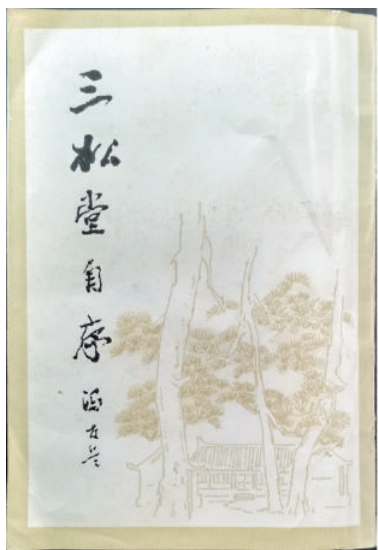 三松堂自序
冯友兰